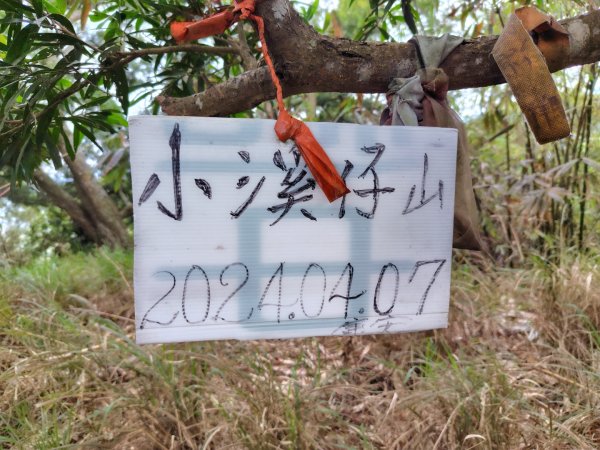 小溪仔山
2024.04.07